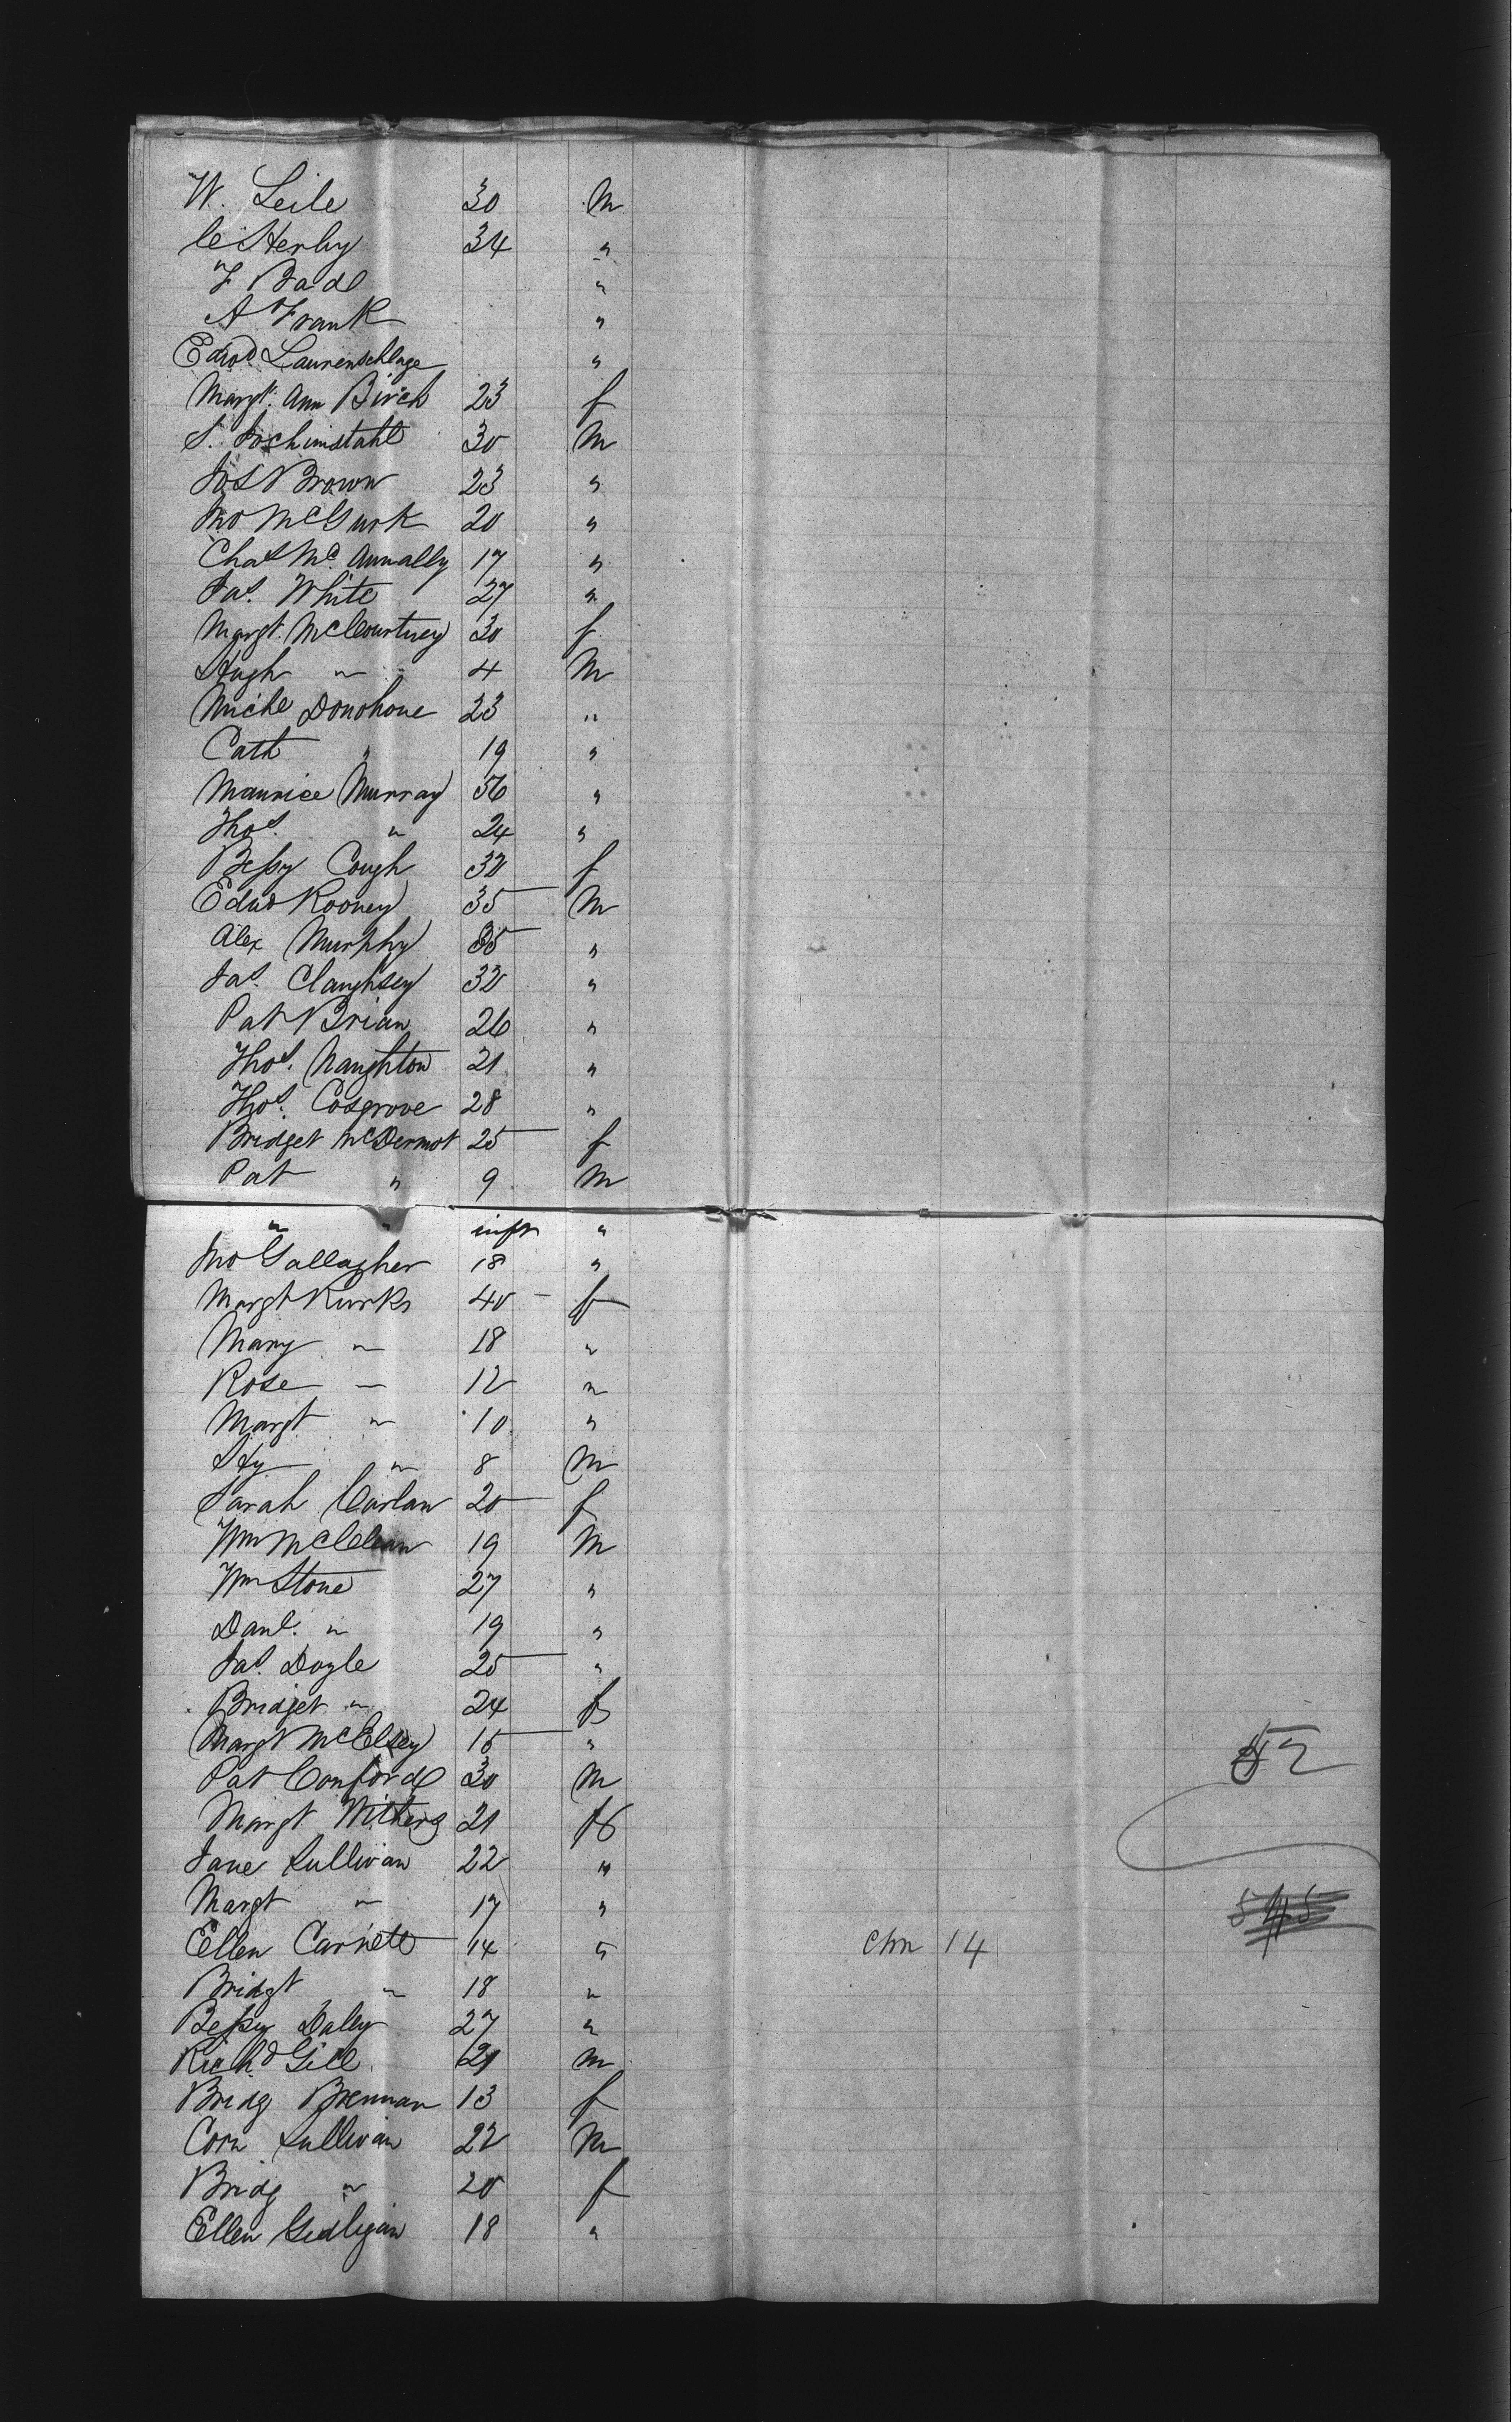 W. Leile 30 M
C Herby 34 "
F Bade "
A Frank "
Edwd Laurenschlage "
Margt. Ann Birch 23 f
S. Jochimstahl 30 M
Jos Brown 23 "
Jno McGurk 20 "
Chas Mc. Annally 17 "
Jas. White 27 "
Margt. McCourtney 30 f
Hugh " 4 M
Michl Donohoue 23 "
Cath " 19 "
Maurice Murray 56 "
Thos. " 24 "
Bessy Cough 30 f
Edwd Rooney 35 M
Alex Murphy 35 "
Jas. Claughsey 32 "
Pat Brian 26 "
Thos. Naughton 21 "
Thos. Cosgrove 28 "
Bridget McDermot 25 f
Pat " 9 M
" " inft "
Jno Gallagher 18 "
Margt Kurks 40 f
Mary " 18 "
Rose " 12 "
Margt " 10 "
Hy " 8 M
Sarah Carlan 20 f
Wm McClean 19 M
Wm Stone 27 "
Danl. " 19 "
Jas. Doyle 25 "
Bridget " 24 f
Margt McElsey 15 "
Pat Conford 30 M
52
Margt Withers 21 f
Jane Sullivan 22 "
Margt " 17 "
545
Ellen Carnett 14 " Chn 14
Bridgt " 18 "
Bessy Daley 27 "
Richd Gill 21 M
Bridg Brennan 13 f
Corn Sullivan 22 M
Bridg " 20 f
Ellen Gedligan 18 "